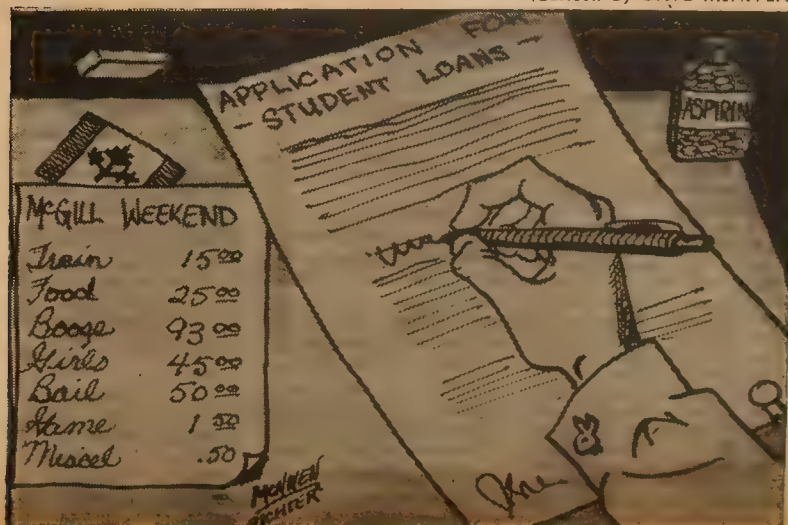 APPLICATION FOR
- STUDENT LOANS -
ASPIRIN
McGILL WEEKEND
Train 15 00
Food 25 00
Booze 93 00
Girls 45 00
Bail 50 00
Game 1 50
Miscel .50